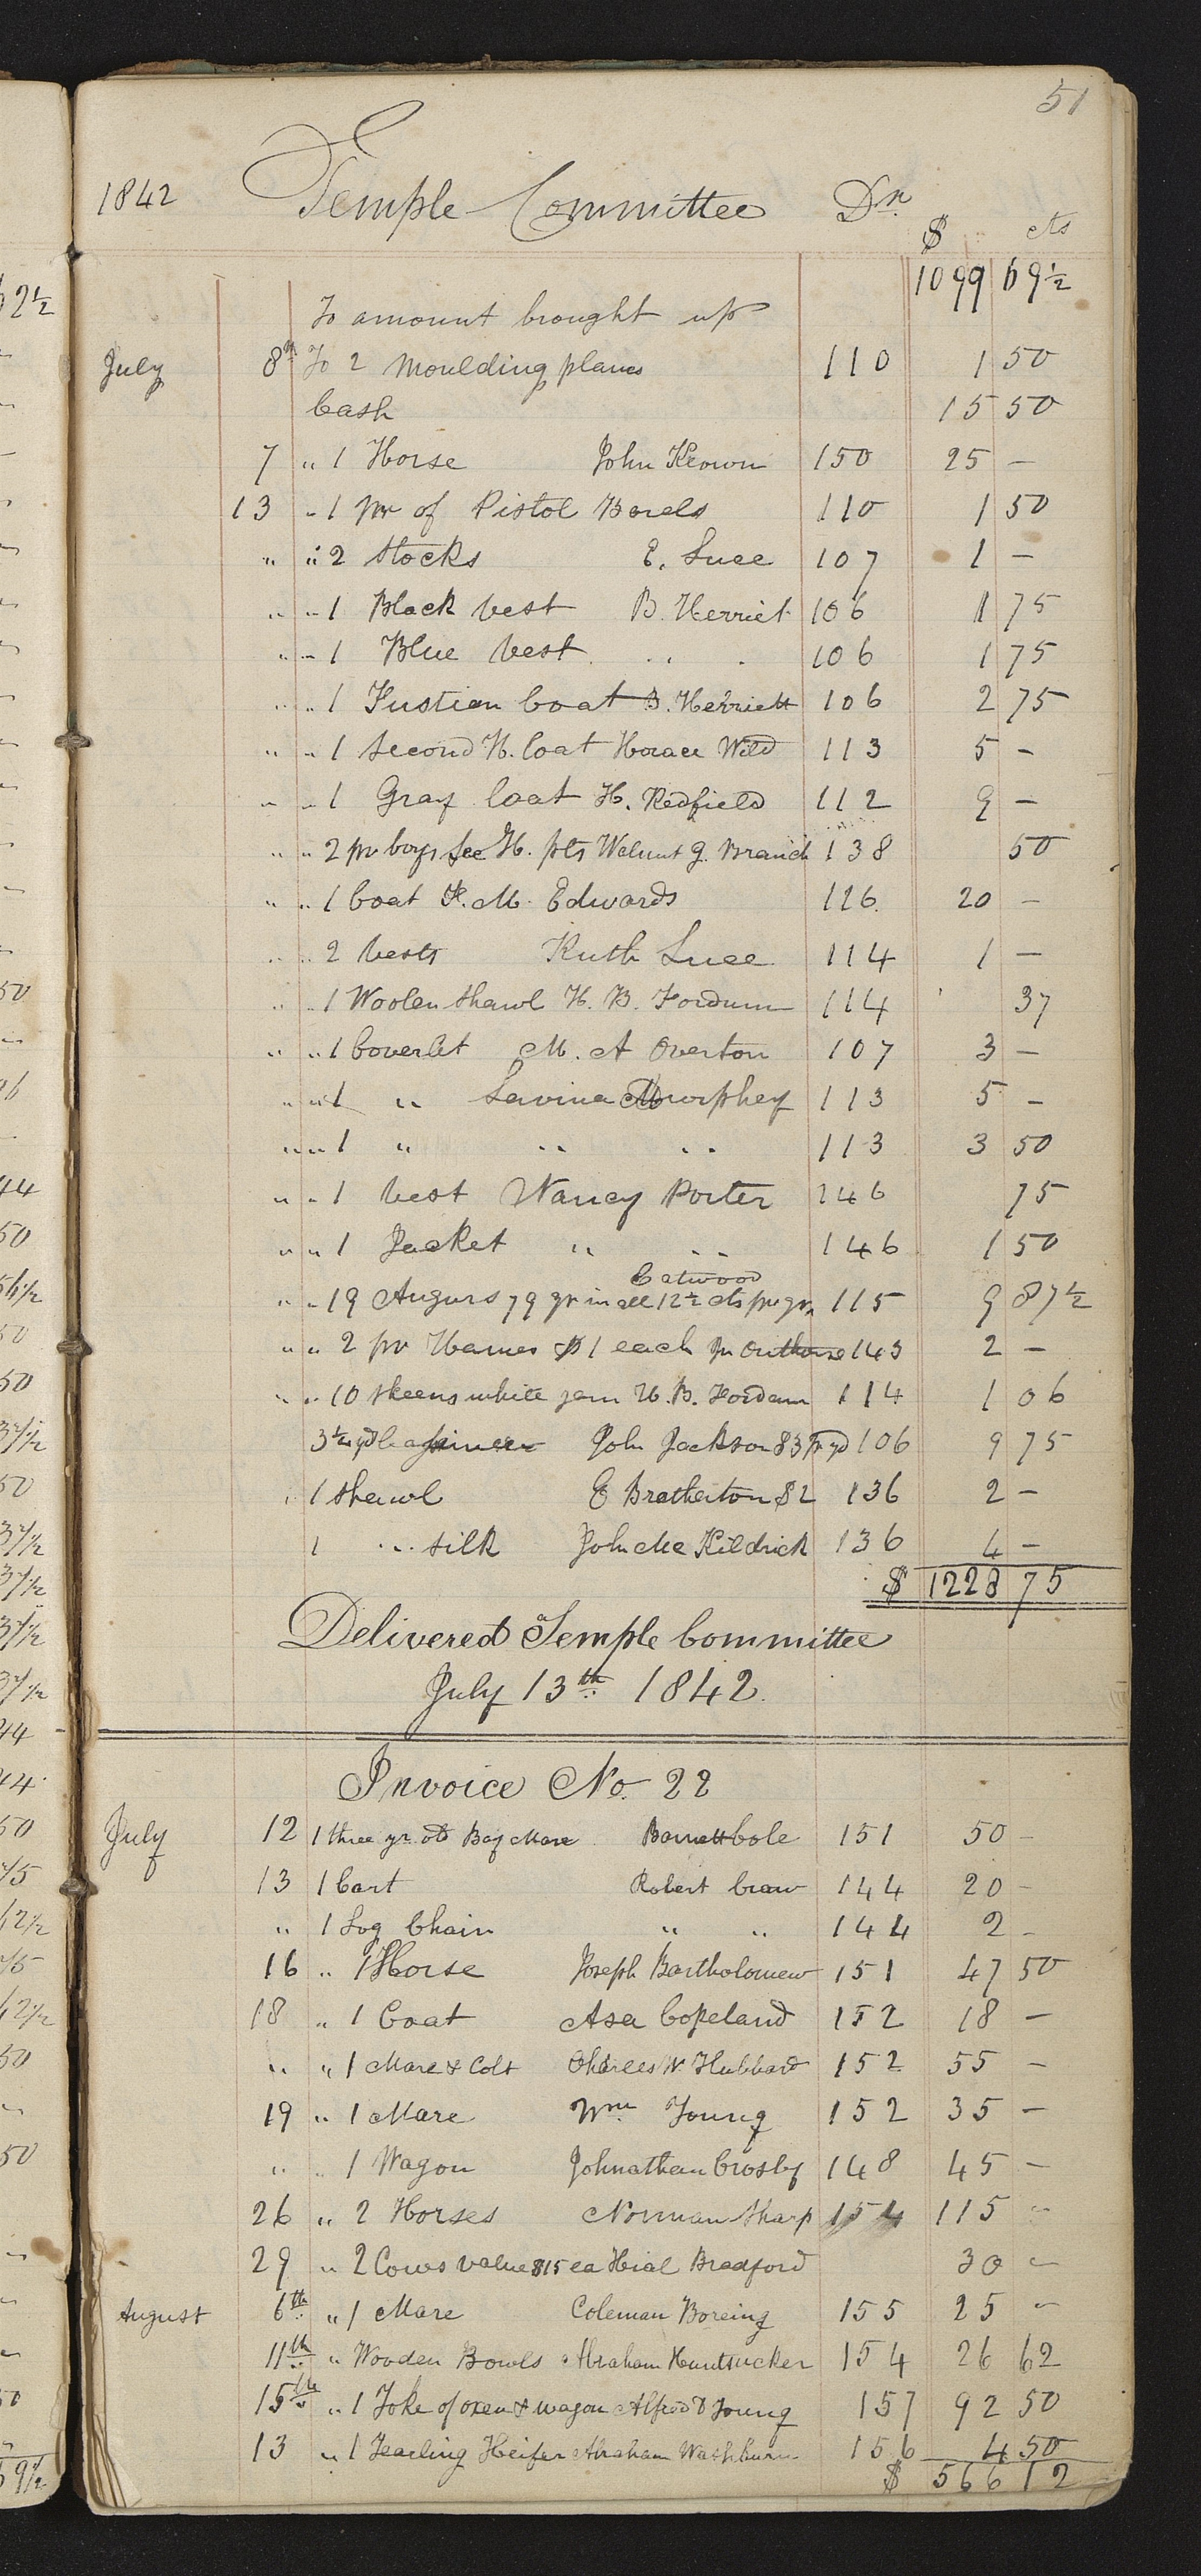 51
1842 Temple Committee Dr.
$ cts
1099 69½
To amount brought up
July 8th To 2 Moulding planes 110 1 50
Cash 15 50
7 " 1 Horse John Keown 150 25 –
13 " 1 pr of Pistol Barels 110 1 50
" " 2 Stocks E. Luce 107 1 –
" " 1 Black Vest B. Herriet 106 1 75
" " 1 Blue Vest " " 106 1 75
" " 1 Fustien Coat B. Herriett 106 2 75
" " 1 Second H. Coat Horace Wild 113 5 –
" " 1 Gray Coat H. Redfield 112 9 –
" " 2 pr boys Sec H. pts Walnut G. Branch 138 50
" " 1 Coat F. M. Edwards 126 20 –
" " 2 Vests Ruth Luce 114 1 –
" " 1 Woolen Shawl H. B. Fordum 114 37
" " 1 Coverlet M. A Overton 107 3 –
" " 1 " Lavina Murphey 113 5 –
" " 1 " " " 113 3 50
" " 1 Vest Nancy Porter 146 75
" " 1 Jacket " " 146 1 50
Catwood
" " 19 Augurs 79 qr in all 12½ cts pr qr 115 9 87½
" " 2 pr Hames $1 each Jn Outhouse 143 2 –
" " 10 Skeens white yarn H. B. Fordam 114 1 06
3¼ yd Casimere John Jackson $3 pr yd 106 9 75
" 1 Shawl E Bratherton $2 136 2 –
1 " silk John Mc Kildrick 136 4 –
$ 1228 75
Delivered Temple Committee
July 13th 1842.
Invoice No. 22
July 12 1 three yr. old Bay Mare Barnett Cole 151 50 –
13 1 Cart Robert Craw 144 20 –
" 1 Log Chain " " 144 2 –
16 " 1 Horse Joseph Bartholomew 151 47 50
18 " 1 Coat Asa Copeland 152 18 –
" " 1 Mare & Colt Charles W Hubbard 152 55 –
19 " 1 Mare Wm Young 152 35 –
" " 1 Wagon Johnathan Crosby 148 45 –
26 " 2 Horses Norman Sharp 154 115 –
29 " 2 Cows value $15 ea Hial Bradford 30 –
August 6th " 1 Mare Coleman Boreing 155 25 –
11th " Wooden Bowls Abraham Huntsucker 154 26 62
15th " 1 Yoke of oxen & wagon Alfred D Young 157 92 50
13 " 1 Yearling Heifer Abraham Washburn 156 4 50
$ 566 12